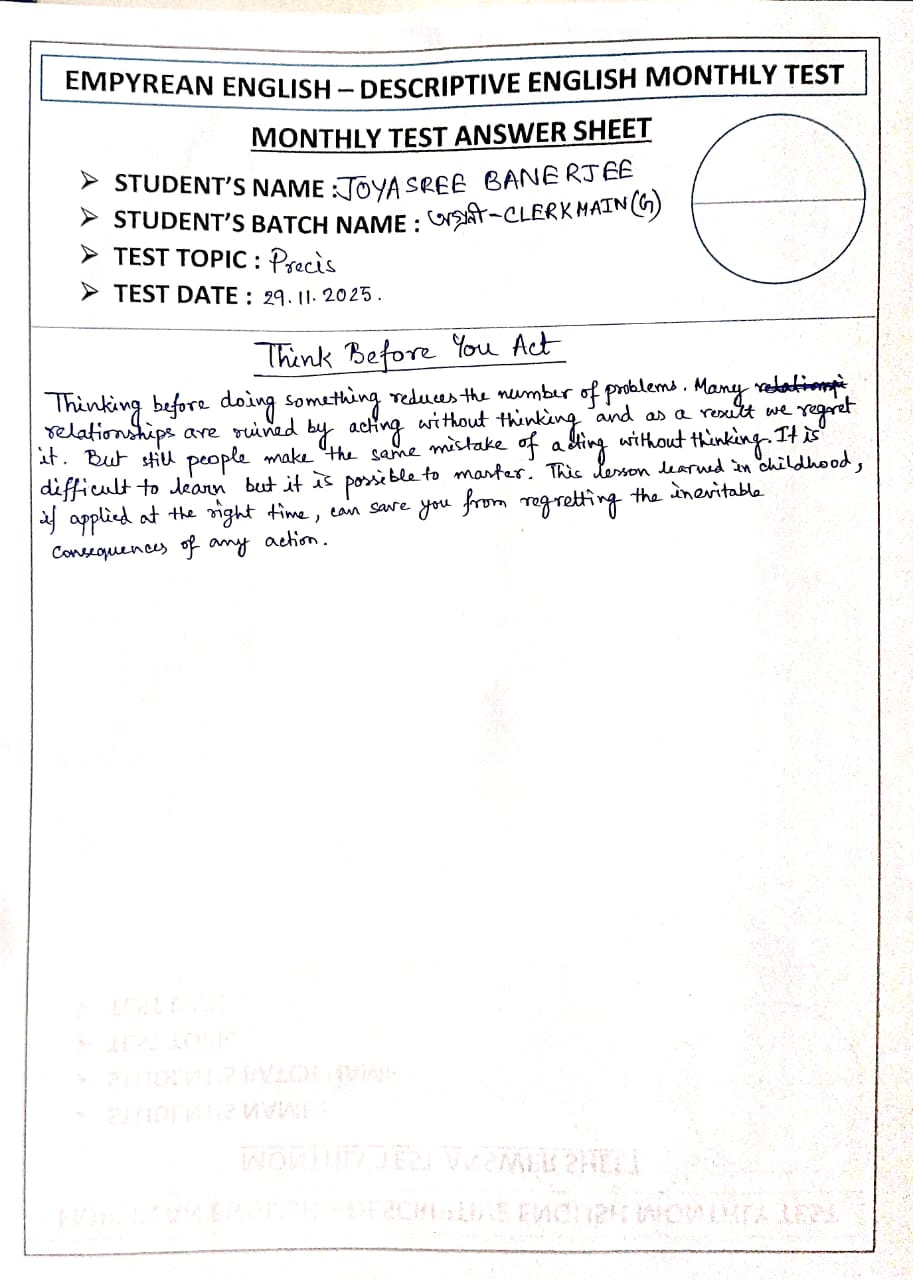 EMPYREAN ENGLISH – DESCRIPTIVE ENGLISH MONTHLY TEST
MONTHLY TEST ANSWER SHEET
➤ STUDENT'S NAME : JOYASREE BANERJEE
➤ STUDENT'S BATCH NAME : অগ্নি-CLERK MAIN (G)
➤ TEST TOPIC : Precis
➤ TEST DATE : 29.11.2025.
Think Before You Act
Thinking before doing something reduces the number of problems. Many
relationships are ruined by acting without thinking and as a result we regret
it. But still people make the same mistake of acting without thinking. It is
difficult to learn but it is possible to master. This lesson learned in childhood,
if applied at the right time, can save you from regretting the inevitable
consequences of any action.